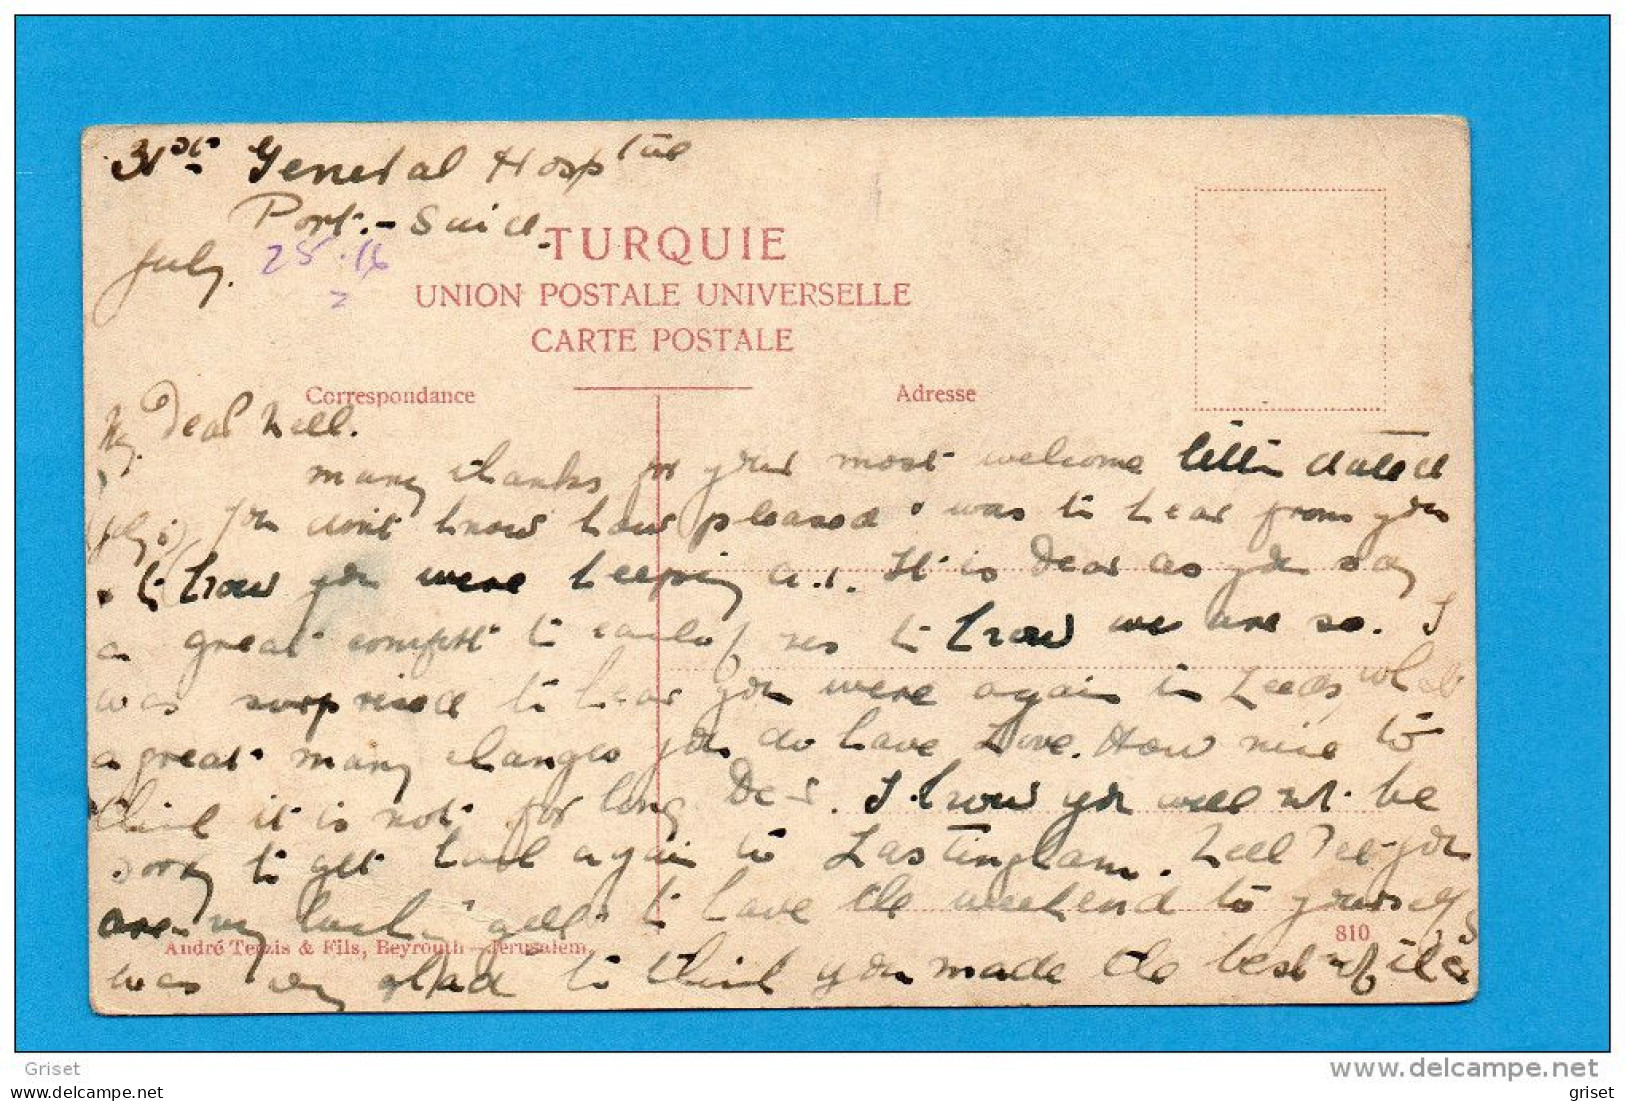 31st General Hosptal
Port-Said.
July. 25.16
TURQUIE
UNION POSTALE UNIVERSELLE
CARTE POSTALE
Correspondance
Adresse
My Dear Nell.
many thanks for your most welcome letter dated
(July 6) you dont know how pleased I was to hear from you
& to know you were keeping It is Dear as you say
a great comfort to each of us to know we are so. I
was surprised to hear you were again in Leeds, what
a great many changes you do have Love. How nice to
think it is not for long Dear. I know you will not be
sorry to get back again to Lastingham. Well you
are very lucky to have the weekend to yourself, I
was very glad to think you made the best of it
André Terzis & Fils, Beyrouth - Jerusalem.
810
Griset
griset
www.delcampe.net
griset